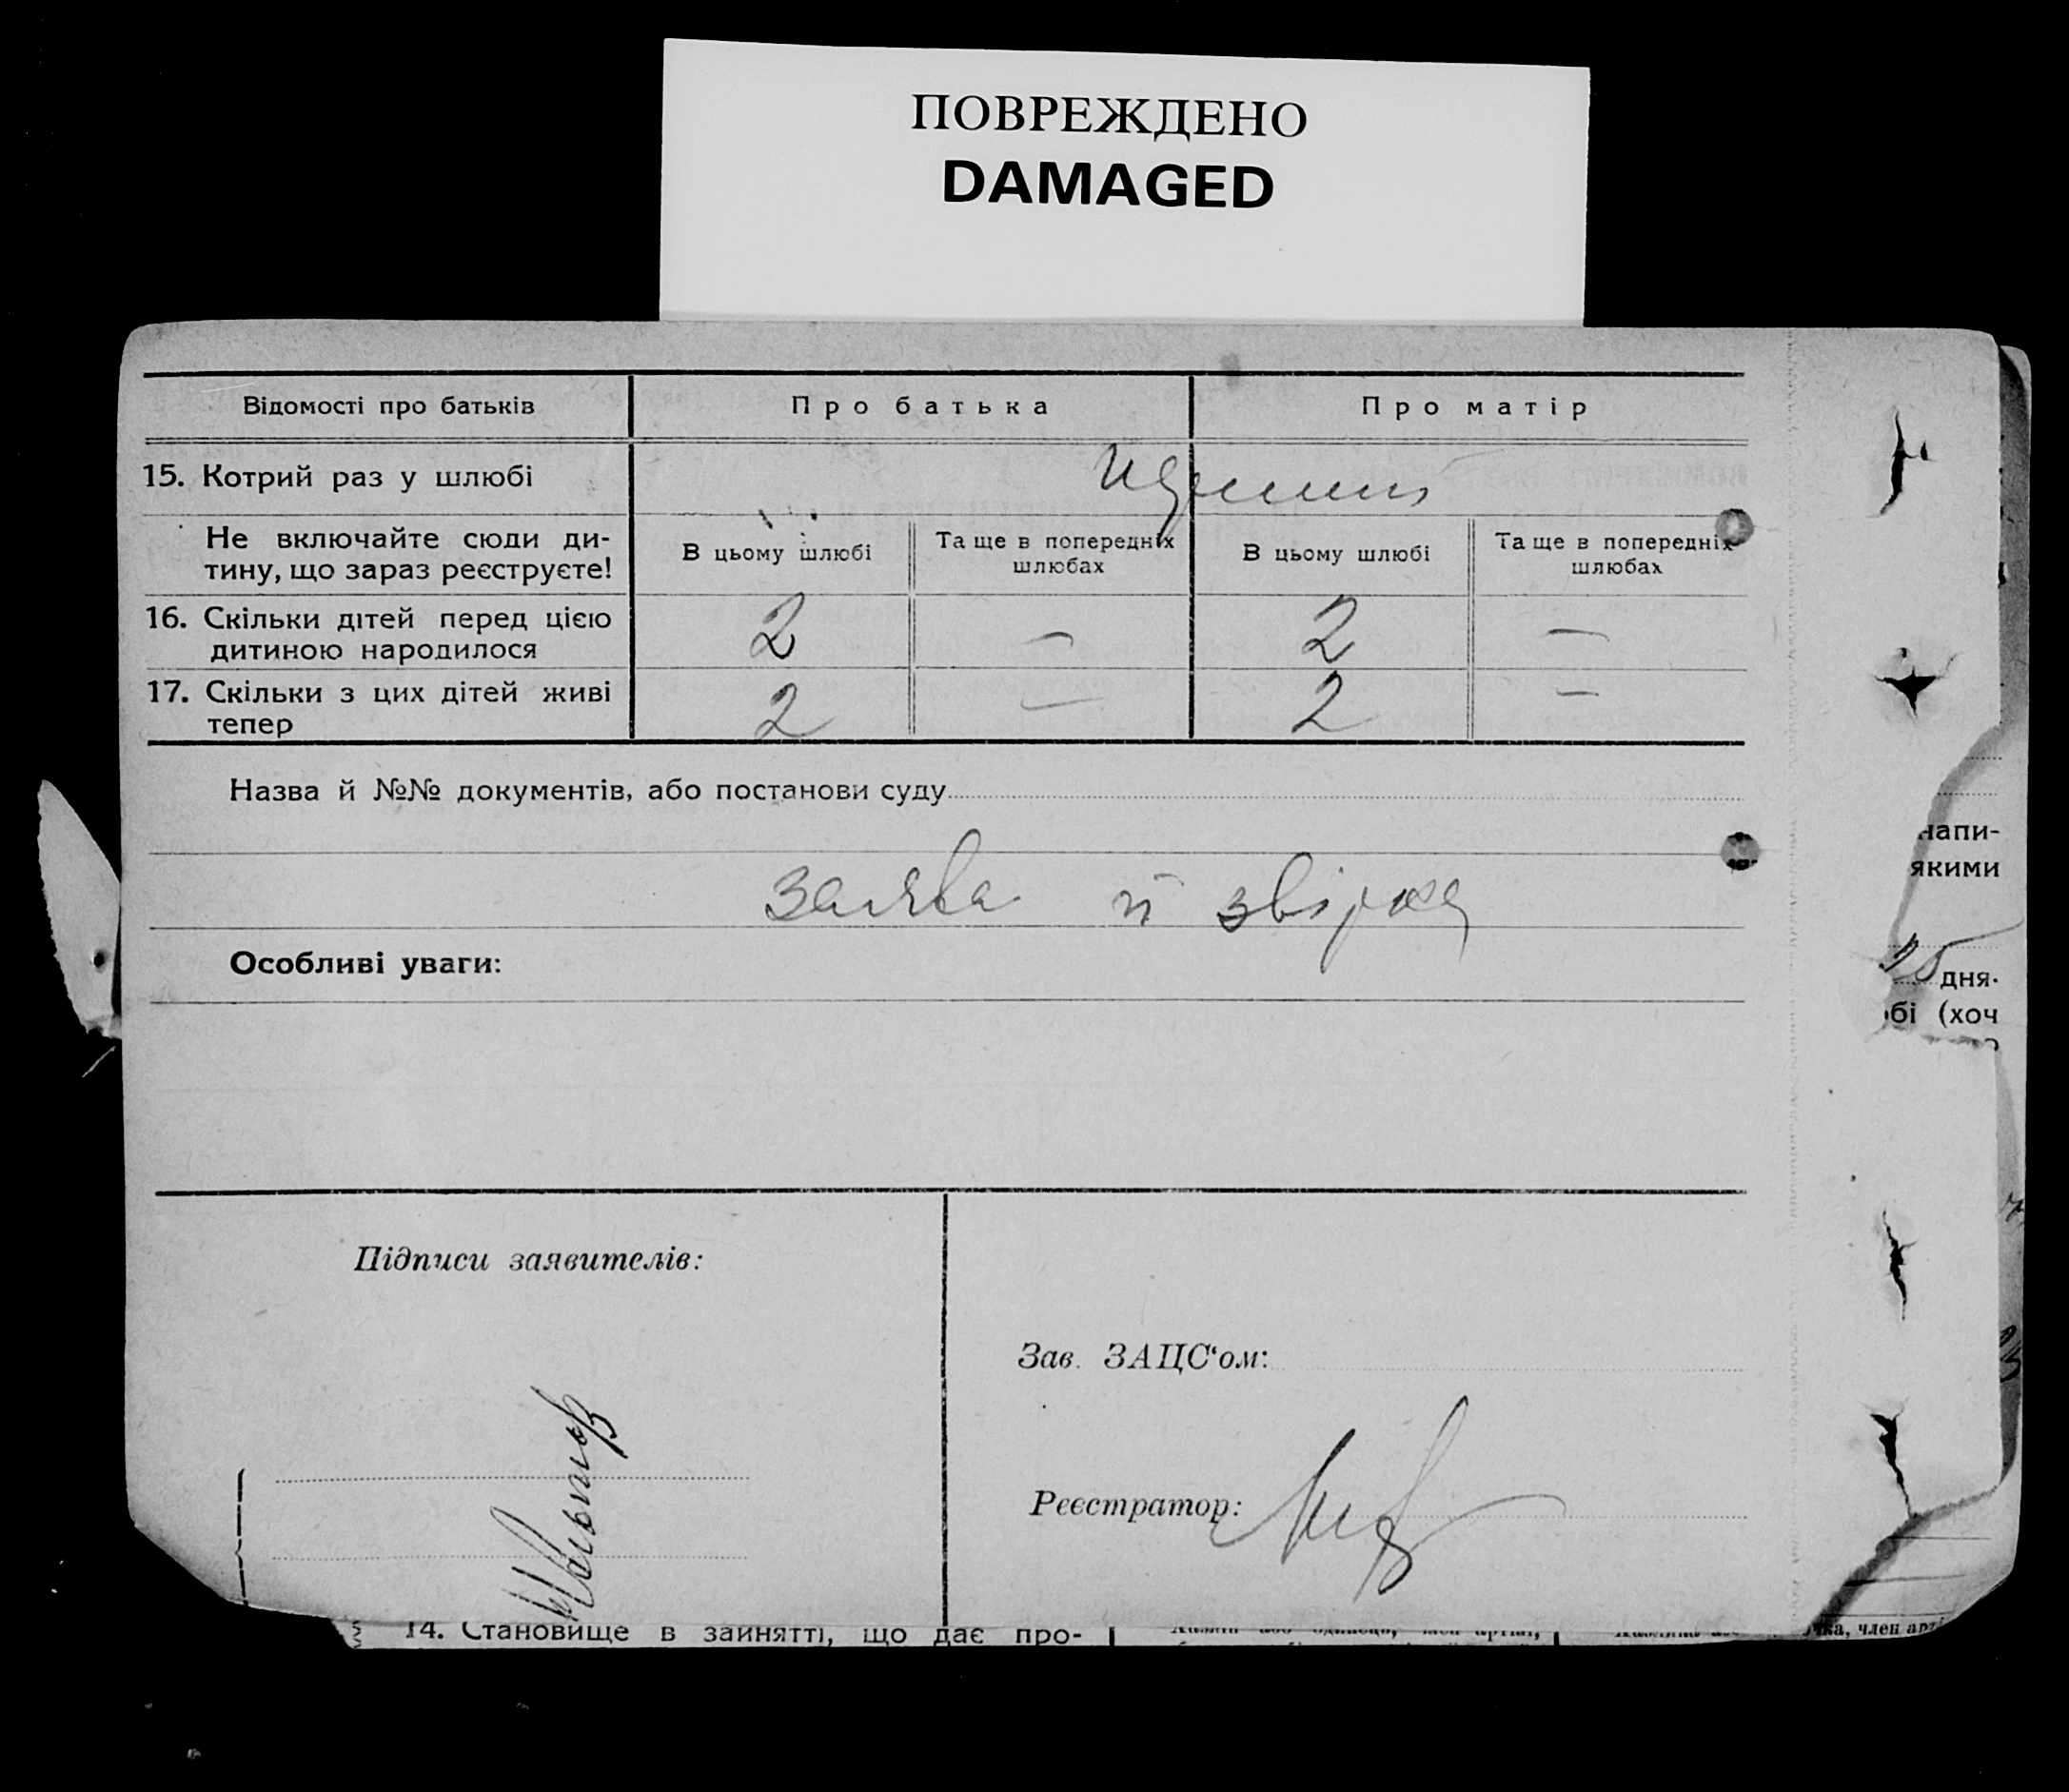 ПОВРЕЖДЕНО
DAMAGED
Відомості про батьків
Про батька
Про матір
15. Котрий раз у шлюбі
Не включайте сюди ди-
тину, що зараз реєструєте!
В цьому шлюбі
Та ще в попередніх
шлюбах
В цьому шлюбі
Та ще в попередніх
шлюбах
16. Скільки дітей перед цією
дитиною народилося
2 — 2 —
17. Скільки з цих дітей живі
тепер
2 — 2 —
Назва й №№ документів, або постанови суду
Заява й звірка
Особливі уваги:
Підписи заявителів:
Зав. ЗАЦС‘ом:
Реєстратор:
14. Становище в занятті, що дає про-
напи-
якими
дня.
бі (хоч
член арті